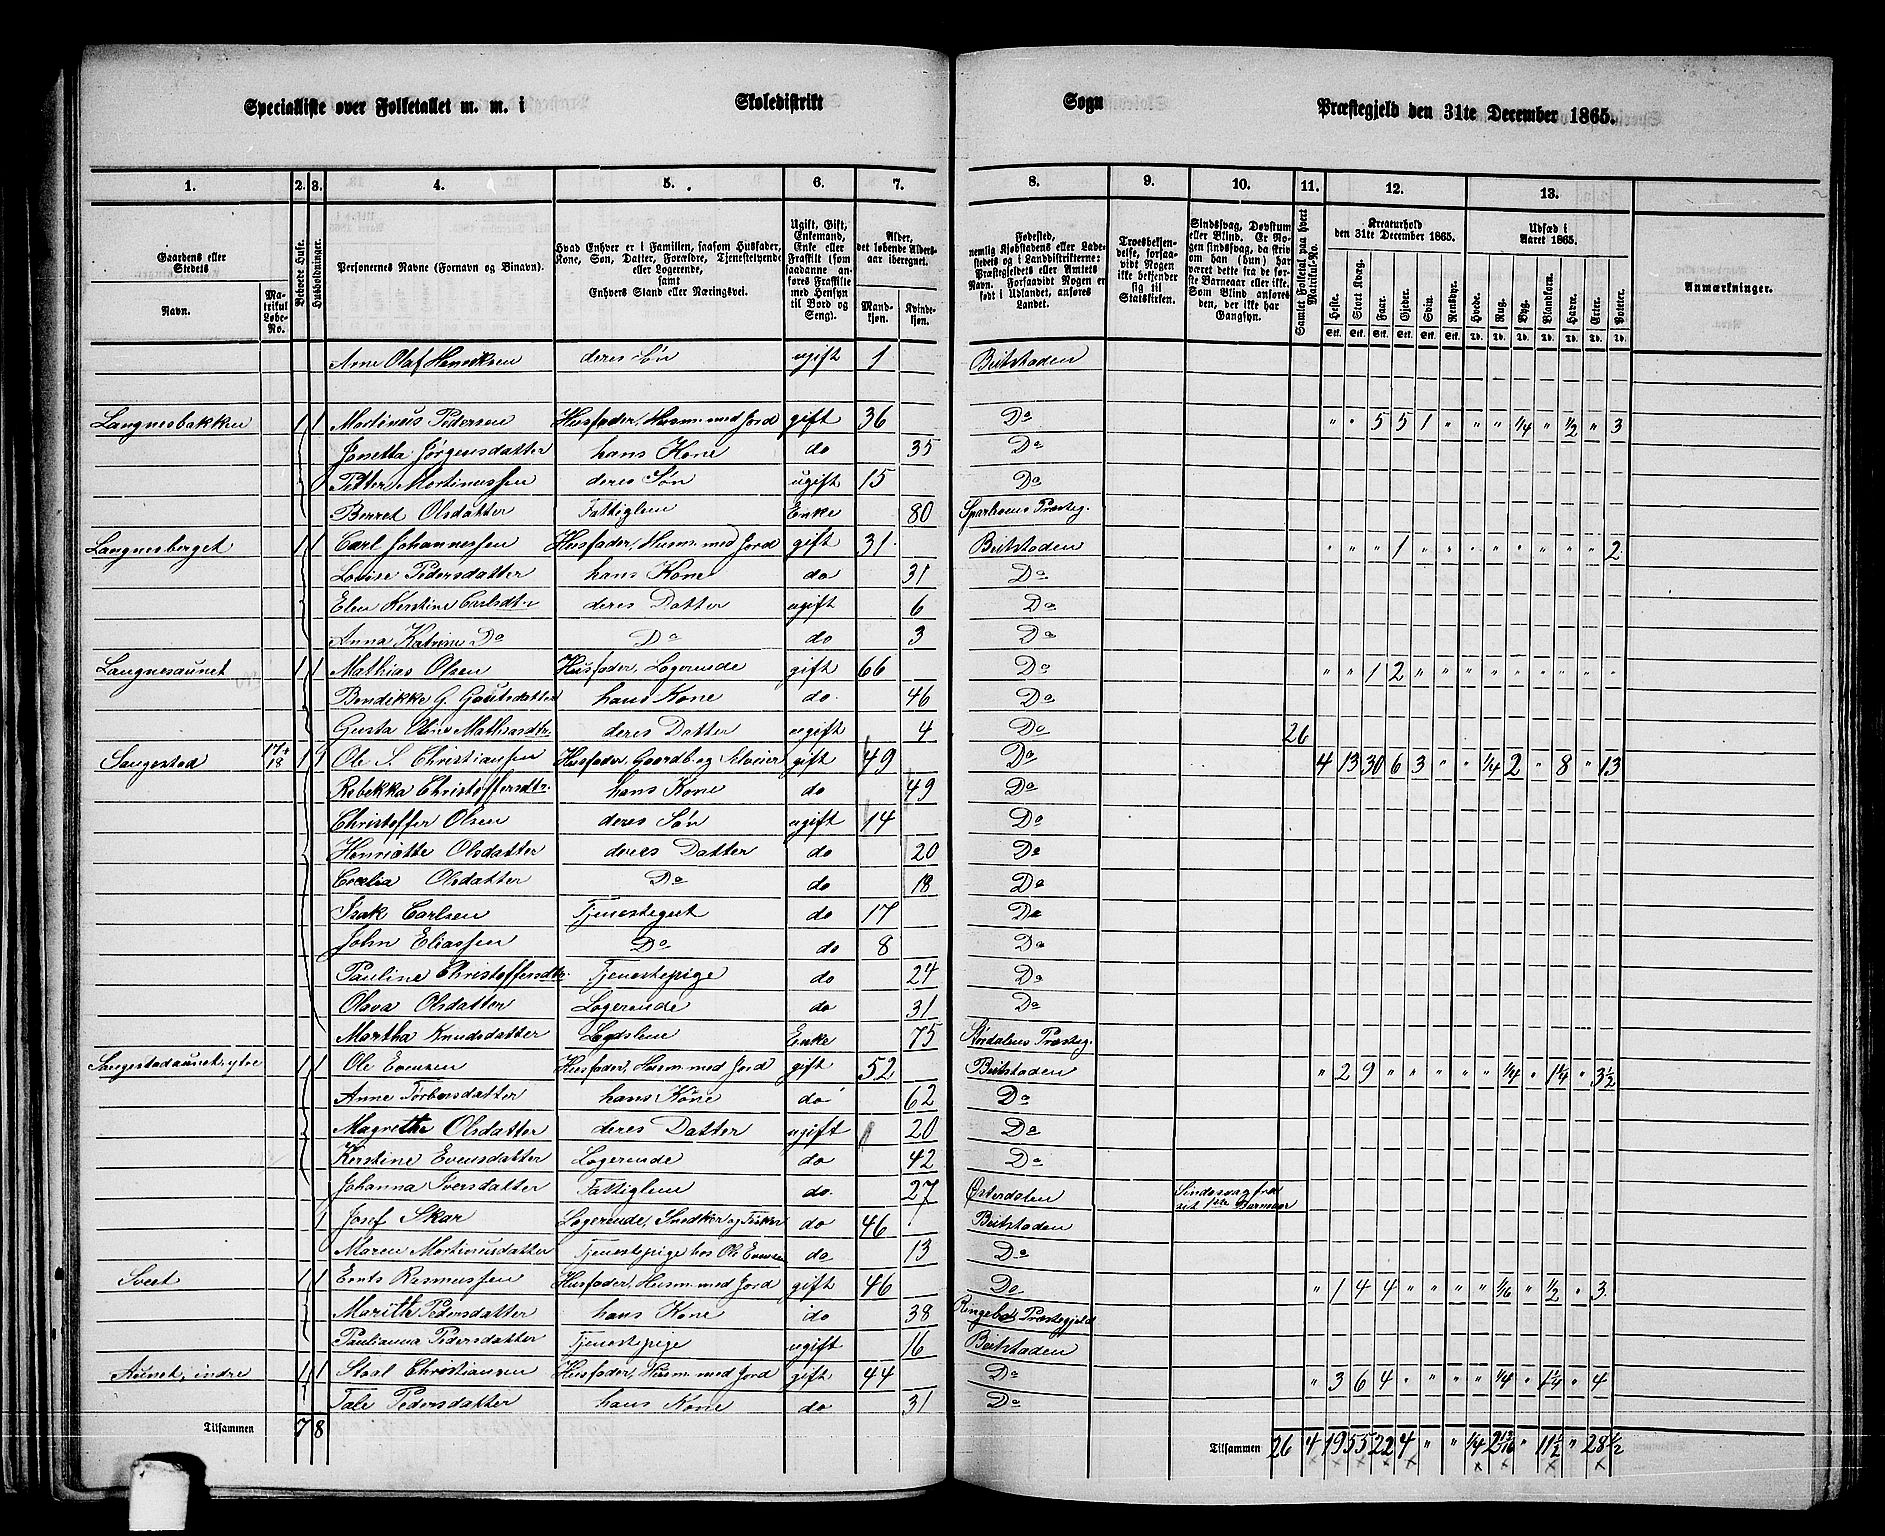 Specialliste over Folketallet m. m. i Skoledistrikt Sogn Præstegjeld den 31te December 1865.
1. 2. 3. 4. 5. 6. 7. 8. 9. 10. 11. 12. 13.
Gaardens eller Stedets Navn. Matrikul Løbe-No. Beboede Huse. Husholdninger. Personernes Navne (Fornavn og Binavn).
Hvad Enhver er i Familien, saasom Husfader, Kone, Søn, Datter, Forældre, Tjenestetyende eller Logerende, samt Enhvers Stand eller Næringsvei.
Ugift, Gift, Enkemand, Enke eller Fraskilt (som saadanne anføres Fraskilte med Hensyn til Bord og Seng).
Alder, det løbende Aldersaar iberegnet. Mandkjøn. Kvindekjøn.
Fødested, nemlig Kjøbstadens eller Ladestedets og i Landdistrikterne: Præstegjeldets eller Amtets Navn. Forsaavidt Nogen er født i Udlandet, anføres Landet.
Troesbekjendelse, forsaavidt Nogen ikke bekjender sig til Statskirken.
Sindssvag, Døvstum eller Blind. Er Nogen sindssvag, da skrives om han (hun) har været dette fra de første Barneaar eller ikke. Som Blind anføres den, der ikke har Gangsyn.
Samlet Folketal paa hvert Matrikul-No.
Kreaturhold den 31te December 1865. Heste. Stort Kvæg. Faar. Gjeder. Svin. Rensdyr.
Udsæd i Aaret 1865. Hvede. Rug. Byg. Blandkorn. Havre. Erter. Poteter.
Anmærkninger.
Arne Olaf Henriksen deres Søn ugift 1 Beitstaden
Langnesbakken 1 1 Martinus Pedersen Husfader, Husm. med Jord gift 36 Do " " 5 5 1 " " " 1/4 " 1/2 " 3
Jonetta Jørgensdatter hans Kone do 35 Do
Petter Martinussen deres Søn ugift 15 Do
Berret Olsdatter Fattiglem Enke 80 Sparboens Præsteg.
Langnesberget 1 1 Carl Johannessen Husfader, Husm. med Jord gift 31 Beitstaden " " " 1 " " " " " " " " 2
Lovise Pedersdatter hans Kone do 31 Do
Elen Kerstine Carlsdtr deres Datter ugift 6 Do
Anna Katrine Do Do do 3 Do
Langnesaunet 1 1 Mathias Olsen Husfader, Logerende gift 66 Do " " 1 2 " " " " " " " " "
Bendikke G. Gautsdatter hans Kone do. 46 Do
Gusta Oline Mathiasdtr. deres Datter ugift 4 Do 26
Sangestad 17+18 1 Ole S. Christiansen Husfader, Gaardb. og Selveier gift 49 Do 4 13 30 6 3 " " 1/4 2 " 8 " 13
Rebekka Christoffersdtr. hans Kone do 49 Do
Christoffer Olsen deres Søn ugift 14 Do
Henriette Olsdatter deres Datter do 20 Do
Cecelia Olsdatter Do do 18 Do
Isak Carlsen Tjenestegut do 17 Do
John Eliassen Do do 8 Do
Pauline Christoffersdtr. Tjenestepige do 24 Do
Olava Olsdatter Logerende do 31 Do
Martha Knudsdatter Lægdslem Enke 75 Præsteg.
Sangestadaunet, ytre 1 1 Ole Evensen Husfader, Husm. med Jord gift 52 Beitstaden " 2 9 " " " " " 1/4 " 1 1/4 " 3 1/2
Anne Torbersdatter hans Kone do 62 Do
Magrethe Olsdatter deres Datter ugift 20 Do
Kerstine Evensdatter Logerende do 42 Do
Johanna Iversdatter Fattiglem do. 27 Østerdalen Sindssvag fra sit 1ste Barneaar
1 Josef Skar Logerende, Snedker og Fisker do 46 Beitstaden
Maren Martinusdatter Tjenestepige hos Ole Evensen do 13 Do
Sveet 1 1 Ents Rasmussen Husfader, Husm. med Jord gift 46 Do " 1 4 4 " " " " 1/16 " 1/2 " 3
Marith Pedersdatter hans Kone do 38 Ringebo Præstegjeld
Paulianna Pedersdatter Tjenestepige ugift 16 Beitstaden
Aunet, indre 1 1 Staal Christiansen Husfader, Husm. med Jord gift 44 Do " 3 6 4 " " " " 1/4 " 1 1/4 " 4
Tale Pedersdatter hans Kone do 31 Do
Tilsammen 7 8 Tilsammen 26 4 19 55 22 4 " " 1/4 2 13/16 " 11 1/2 " 28 1/2